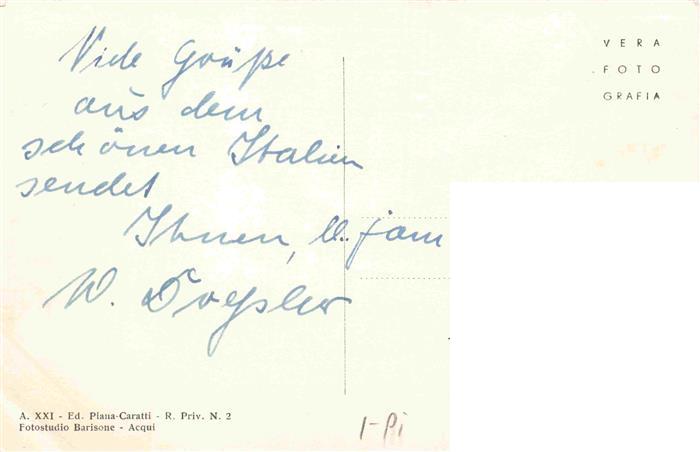 Viele Grüße
aus dem
schönen Italien
sendet
Ihnen,
W.
VERA
FOTO
GRAFIA
A. XXI - Ed. Piana-Caratti - R. Priv. N. 2
Fotostudio Barisone - Acqui
I-Pi